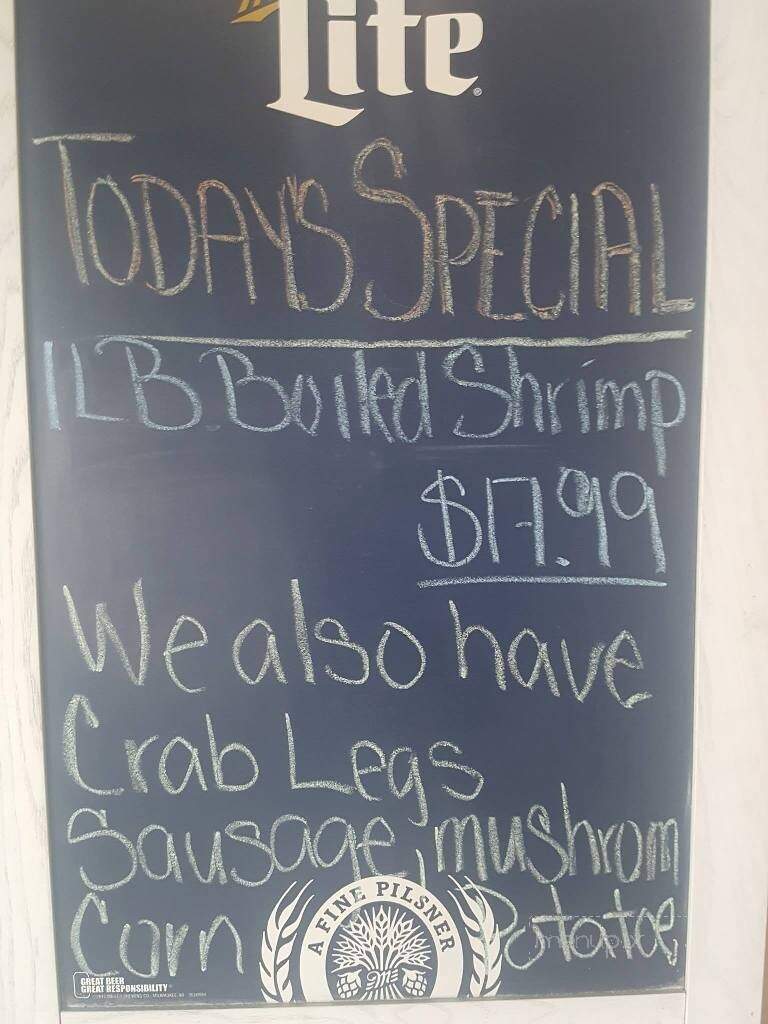 Lite
TODAY'S SPECIAL
1LB Boiled Shrimp
$17.99
We also have
Crab Legs
Sausage, mushrom
Corn Potatoe
A FINE PILSNER
GREAT BEER
GREAT RESPONSIBILITY